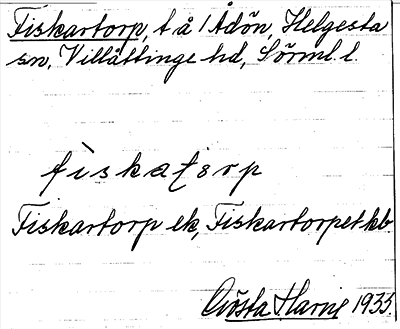 Fiskartorp, t å 1 Ådön, Helgesta
sn, Villåttinge hd, Sörml. l.
fiskatorp
Fiskartorp ek, Fiskartorpet kb.
Gösta Harne 1933.